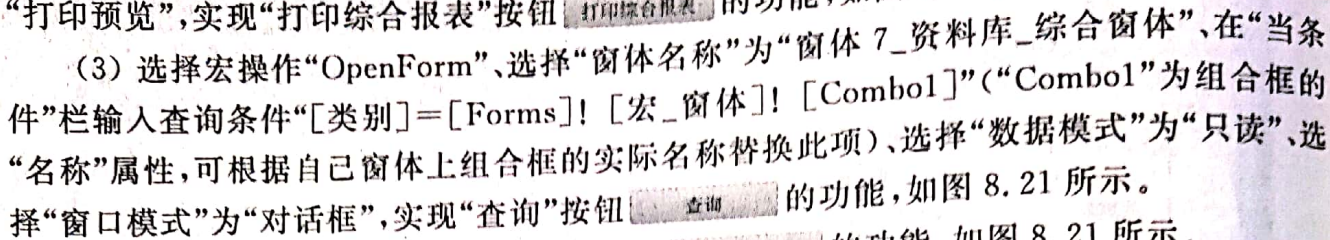 “打印预览”,实现“打印综合报表”按钮 打印综合报表 的功能,如
(3) 选择宏操作“OpenForm”、选择“窗体名称”为“窗体 7_资料库_综合窗体”、在“当条
件”栏输入查询条件“[类别]=[Forms]! [宏_窗体]! [Combo1]”(“Combo1”为组合框的
“名称”属性,可根据自己窗体上组合框的实际名称替换此项)、选择“数据模式”为“只读”、选
择“窗口模式”为“对话框”,实现“查询”按钮 查询 的功能,如图 8.21 所示。
的功能,如图 8.21 所示。